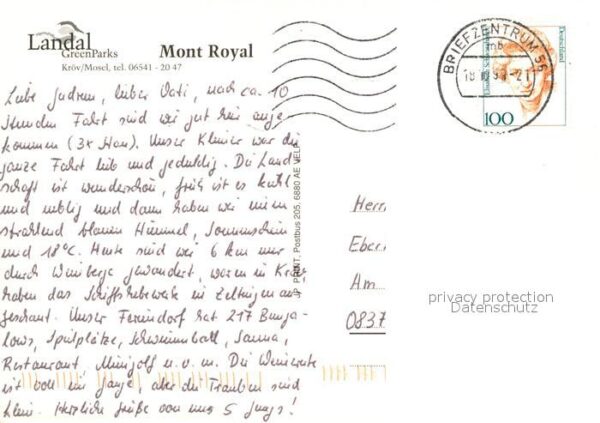 Landal
GreenParks
Mont Royal
Kröv/Mosel, tel. 06541 - 20 47
Liebe Gudrun, lieber Vati, nach ca. 10
Stunden Fahrt sind wir gut hier ange-
kommen (3x Stau). Unser Kleiner war die
ganze Fahrt lieb und geduldig. Die Land-
schaft ist wunderschön, früh ist es kühl
und neblig und dann haben wir einen
strahlend blauen Himmel, Sonnenschein
und 18°C. Heute sind wir 6 km nur
durch Weinberge gewandert, waren in Kröv
haben das Schiffshebewerk in Zeltingen an-
geschaut. Unser Feriendorf hat 217 Bunga-
lows, Spielplätze, Schwimmball, Sauna,
Restaurant, Minigolf u.v.m. Die Weinernte
ist voll im Gange aber die Trauben sind
klein. Herzliche Grüße von uns 5 Jungs!
PRINT, Postbus 205, 6880 AE VELP
BRIEFZENTRUM 54
mb
Deutschland
100
Herrn
Eber
Am
0837
privacy protection
Datenschutz